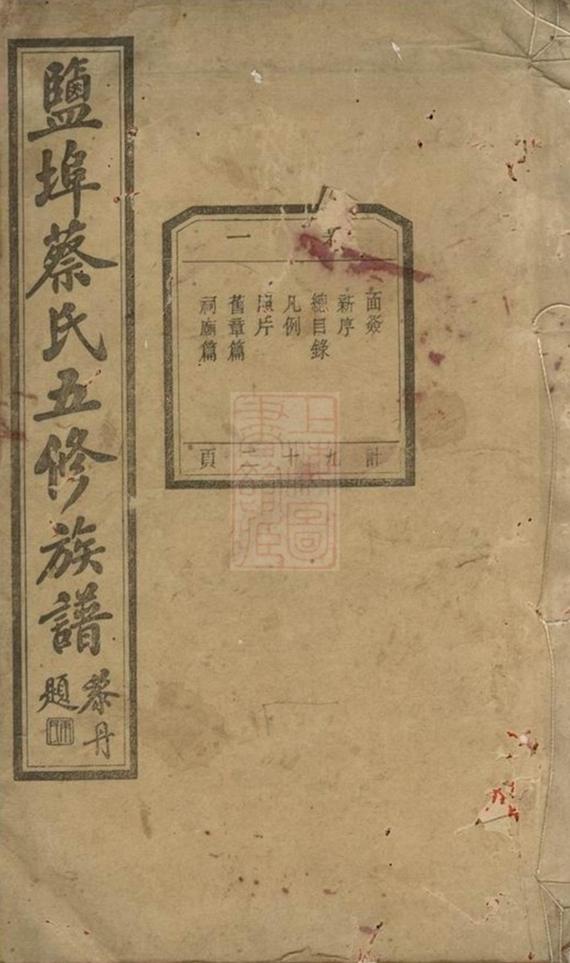 鹽埠蔡氏五修族譜
黎丹
題
一
面簽
新序
總目錄
凡例
照片
舊章篇
祠廟篇
計九十二頁
上海圖
書館藏